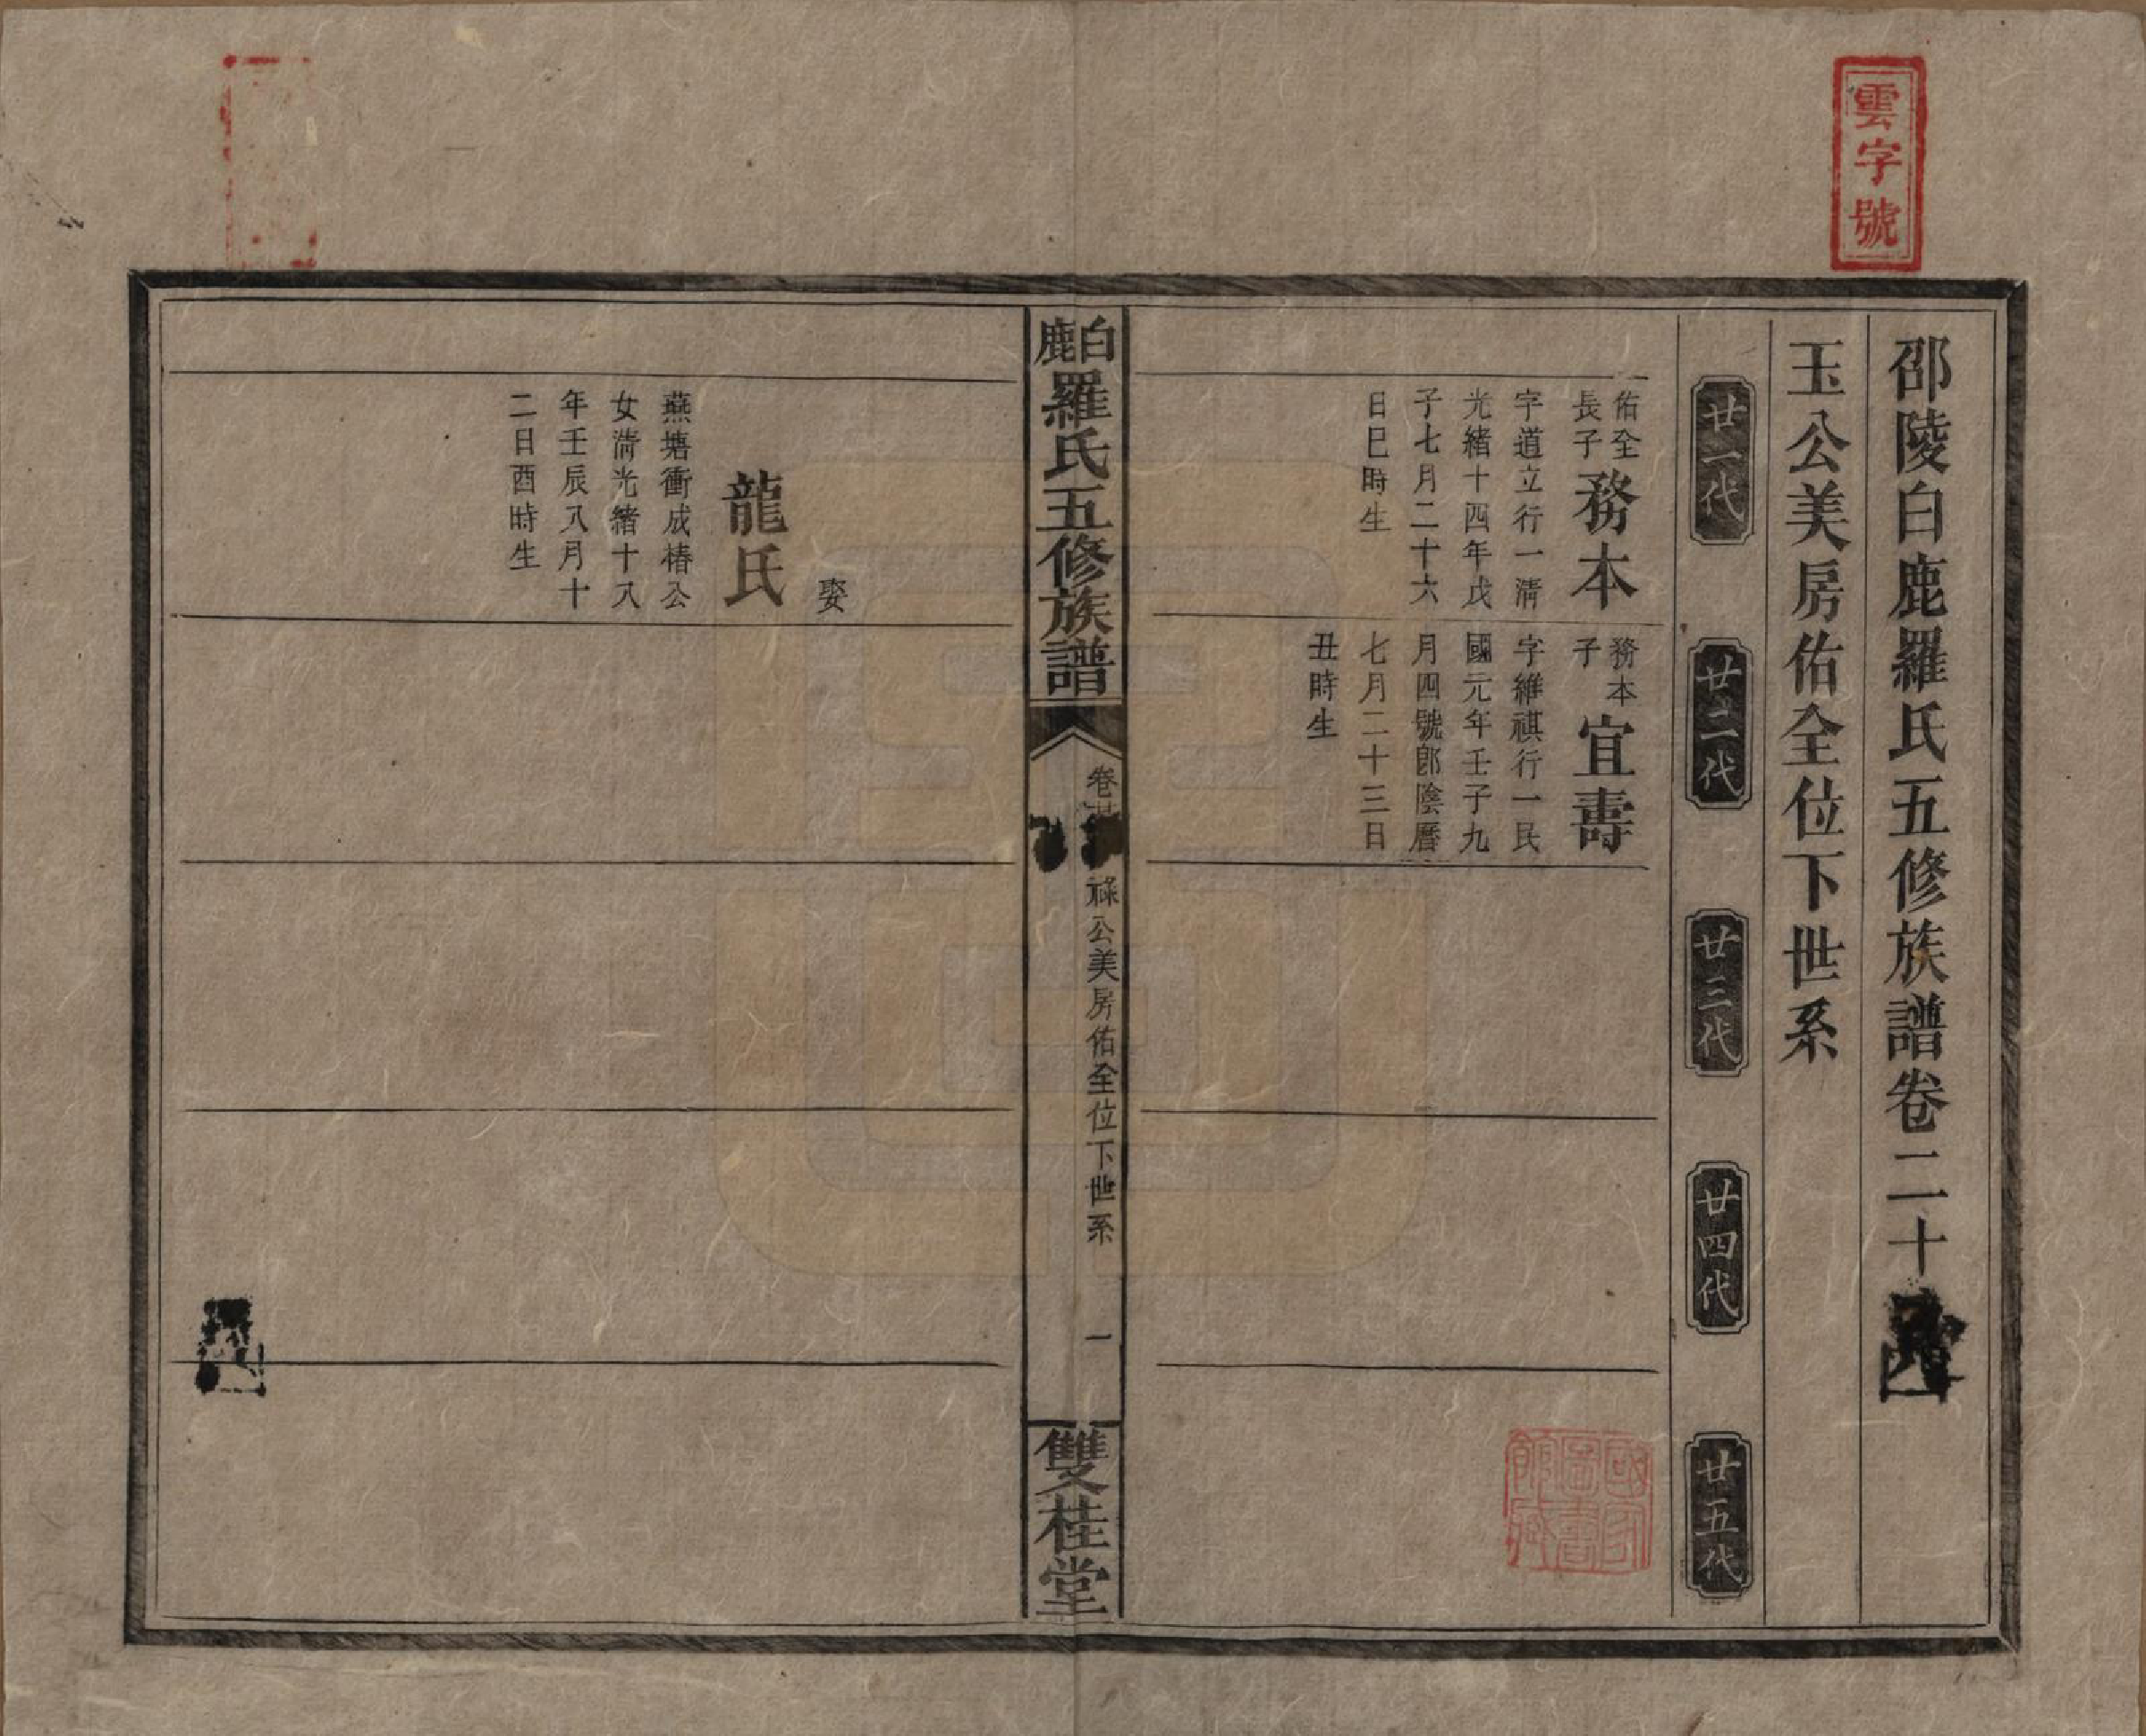 雲字號
邵陵白鹿羅氏五修族譜卷二十
玉公美房佑全位下世系
廿一代
廿二代
廿三代
廿四代
廿五代
佑全
長子
務本
字道立行一清
光緒十四年戊
子七月二十六
日巳時生
務本
子
宜壽
字維祺行一民
國元年壬子九
月四號即陰曆
七月二十三日
丑時生
國家圖書館藏
白鹿羅氏五修族譜
卷
祿公美房佑全位下世系
一
雙桂堂
娶
龍氏
燕塘衝成椿公
女淸光緒十八
年壬辰八月十
二日酉時生